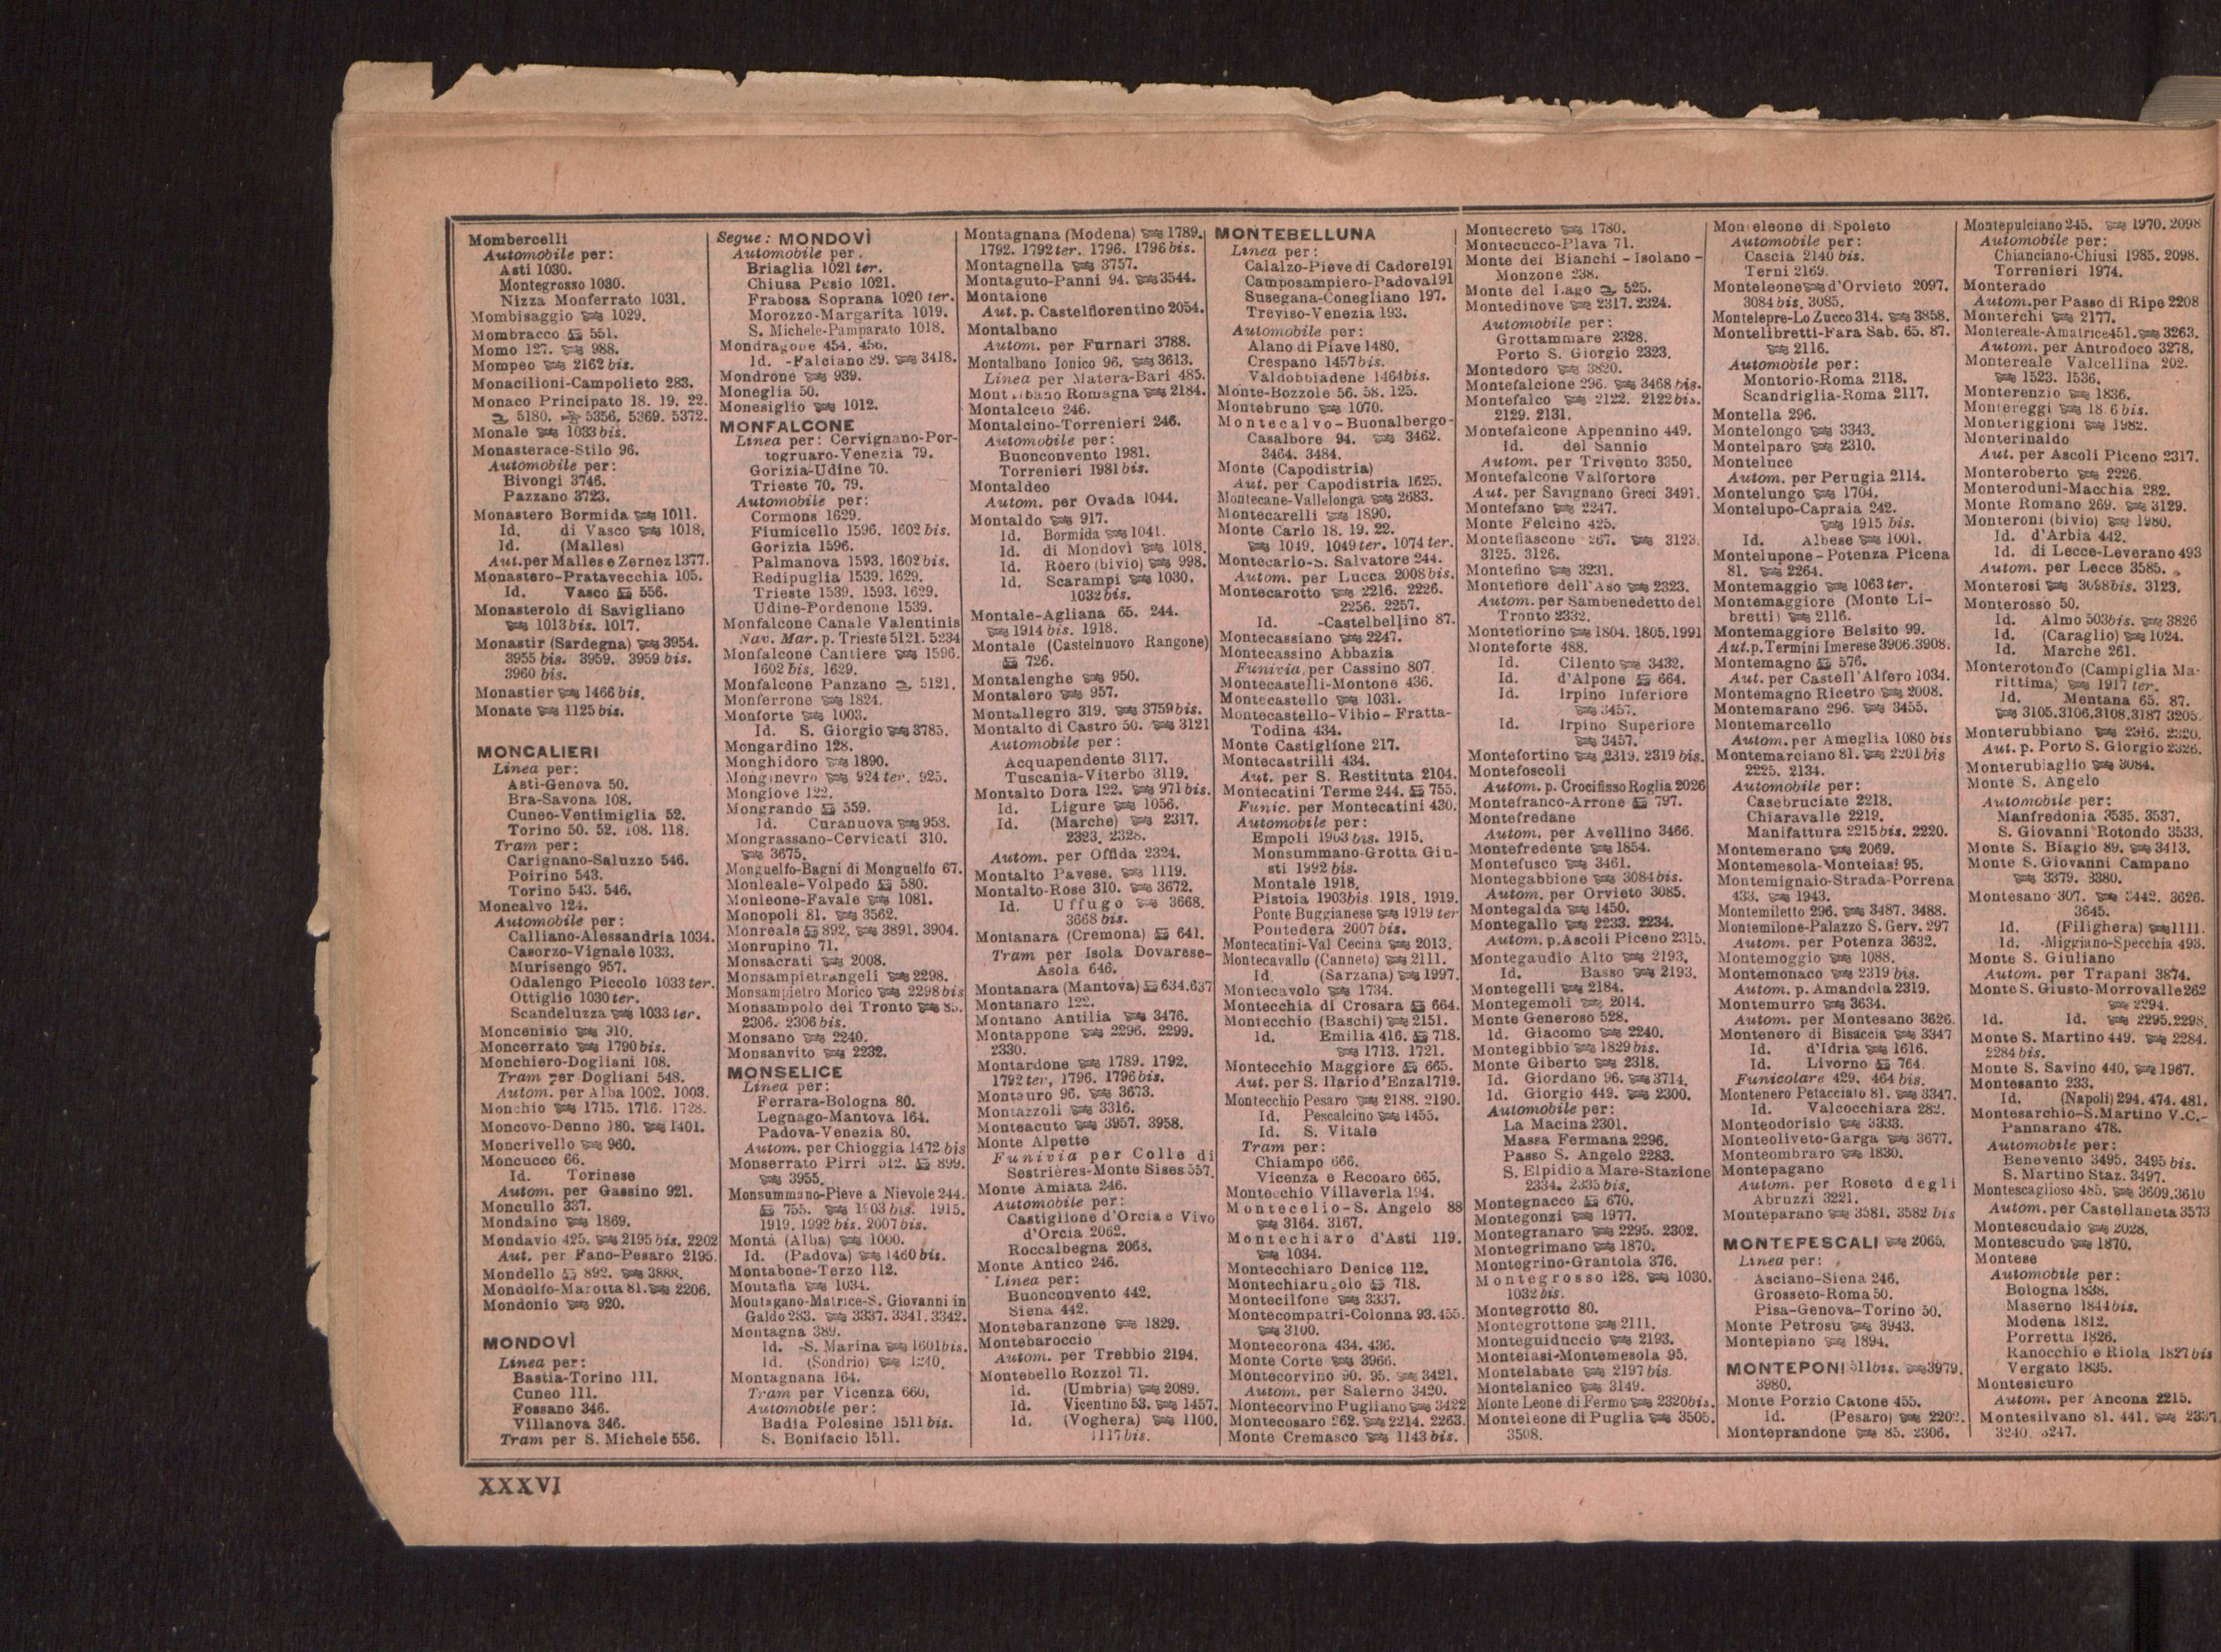 Mombercelli
Automobile per:
Asti 1030.
Montegrosso 1030.
Nizza Monferrato 1031.
Mombisaggio 1029.
Mombracco 551.
Momo 127. 988.
Mompeo 2162 bis.
Monacilioni-Campolieto 283.
Monaco Principato 18. 19. 22.
5180. 5356. 5369. 5372.
Monale 1033 bis.
Monasterace-Stilo 96.
Automobile per:
Bivongi 3746.
Pazzano 3723.
Monastero Bormida 1011.
Id. di Vasco 1018.
Id. (Malles)
Aut. per Malles e Zernez 1377.
Monastero-Pratavecchia 105.
Id. Vasco 556.
Monasterolo di Savigliano
1013 bis. 1017.
Monastir (Sardegna) 3954.
3955 bis. 3959. 3959 bis.
3960 bis.
Monastier 1466 bis.
Monate 1125 bis.
MONCALIERI
Linea per:
Asti-Genova 50.
Bra-Savona 108.
Cuneo-Ventimiglia 52.
Torino 50. 52. 108. 118.
Tram per:
Carignano-Saluzzo 546.
Poirino 543.
Torino 543. 546.
Moncalvo 124.
Automobile per:
Calliano-Alessandria 1034.
Casorzo-Vignale 1033.
Murisengo 957.
Odalengo Piccolo 1033 ter.
Ottiglio 1030 ter.
Scandeluzza 1033 ter.
Moncenisio 910.
Moncerrato 1790 bis.
Monchiero-Dogliani 108.
Tram per Dogliani 548.
Autom. per Alba 1002. 1003.
Monchio 1715. 1716. 1728.
Moncovo-Denno 180. 1401.
Moncrivello 960.
Moncucco 66.
Id. Torinese
Autom. per Gassino 921.
Moncullo 337.
Mondaino 1869.
Mondavio 425. 2195 bis. 2202
Aut. per Fano-Pesaro 2195.
Mondello 892. 3888.
Mondolfo-Marotta 81. 2206.
Mondonio 920.
MONDOVÌ
Linea per:
Bastia-Torino 111.
Cuneo 111.
Fossano 346.
Villanova 346.
Tram per S. Michele 556.
Segue: MONDOVÌ
Automobile per.
Briaglia 1021 ter.
Chiusa Pesio 1021.
Frabosa Soprana 1020 ter.
Morozzo-Margarita 1019.
S. Michele-Pamparato 1018.
Mondragone 454. 456.
Id. -Falciano 89. 3418.
Mondrone 939.
Moneglia 50.
Monesiglio 1012.
MONFALCONE
Linea per: Cervignano-Por-
togruaro-Venezia 79.
Gorizia-Udine 70.
Trieste 70. 79.
Automobile per:
Cormons 1629.
Fiumicello 1596. 1602 bis.
Gorizia 1596.
Palmanova 1593. 1602 bis.
Redipuglia 1539. 1629.
Trieste 1539. 1593. 1629.
Udine-Pordenone 1539.
Monfalcone Canale Valentinis
Nav. Mar. p. Trieste 5121. 5234
Monfalcone Cantiere 1596.
1602 bis. 1629.
Monfalcone Panzano 5121.
Monferrone 1824.
Monforte 1003.
Id. S. Giorgio 3785.
Mongardino 128.
Monghidoro 1890.
Monginevro 924 ter. 925.
Mongiove 122.
Mongrando 559.
Id. Curanuova 958.
Mongrassano-Cervicati 310.
3675.
Monguelfo-Bagni di Monguelfo 67.
Monleale-Volpedo 580.
Monleone-Favale 1081.
Monopoli 81. 3562.
Monreale 892. 3891. 3904.
Monrupino 71.
Monsacrati 2008.
Monsampietrangeli 2298.
Monsampietro Morico 2298 bis
Monsampolo del Tronto 85.
2306. 2306 bis.
Monsano 2240.
Monsanvito 2232.
MONSELICE
Linea per:
Ferrara-Bologna 80.
Legnago-Mantova 164.
Padova-Venezia 80.
Autom. per Chioggia 1472 bis
Monserrato Pirri 512. 899.
3955.
Monsummano-Pieve a Nievole 244.
755. 1903 bis. 1915.
1919. 1992 bis. 2007 bis.
Montà (Alba) 1000.
Id. (Padova) 1460 bis.
Montabone-Terzo 112.
Montafia 1034.
Montagano-Matrice-S. Giovanni in
Galdo 283. 3337. 3341. 3342.
Montagna 389.
Id. -S. Marina 1601 bis.
Id. (Sondrio) 1240.
Montagnana 164.
Tram per Vicenza 660.
Automobile per:
Badia Polesine 1511 bis.
S. Bonifacio 1511.
Montagnana (Modena) 1789.
1792. 1792 ter. 1796. 1796 bis.
Montagnella 3757.
Montaguto-Panni 94. 3544.
Montaione
Aut. p. Castelfiorentino 2054.
Montalbano
Autom. per Furnari 3788.
Montalbano Ionico 96. 3613.
Linea per Matera-Bari 485.
Montalbano Romagna 2184.
Montalceto 246.
Montalcino-Torrenieri 246.
Automobile per:
Buonconvento 1981.
Torrenieri 1981 bis.
Montaldeo
Autom. per Ovada 1044.
Montaldo 917.
Id. Bormida 1041.
Id. di Mondovì 1018.
Id. Roero (bivio) 998.
Id. Scarampi 1030.
1032 bis.
Montale-Agliana 65. 244.
1914 bis. 1918.
Montale (Castelnuovo Rangone)
726.
Montalenghe 950.
Montalero 957.
Montallegro 319. 3759 bis.
Montalto di Castro 50. 3121
Automobile per:
Acquapendente 3117.
Tuscania-Viterbo 3119.
Montalto Dora 122. 971 bis.
Id. Ligure 1056.
Id. (Marche) 2317.
2323. 2328.
Autom. per Offida 2324.
Montalto Pavese. 1119.
Montalto-Rose 310. 3672.
Id. Uffugo 3668.
3668 bis.
Montanara (Cremona) 641.
Tram per Isola Dovarese-
Asola 646.
Montanara (Mantova) 634. 637
Montanaro 122.
Montano Antilia 3476.
Montappone 2296. 2299.
2330.
Montardone 1789. 1792.
1792 ter, 1796. 1796 bis.
Montauro 96. 3673.
Montazzoli 3316.
Monteacuto 3957. 3958.
Monte Alpette
Funivia per Colle di
Sestrières-Monte Sises 557.
Monte Amiata 246.
Automobile per:
Castiglione d'Orcia e Vivo
d'Orcia 2062.
Roccalbegna 2068.
Monte Antico 246.
Linea per:
Buonconvento 442.
Siena 442.
Montebaranzone 1829.
Montebaroccio
Autom. per Trebbio 2194.
Montebello Rozzol 71.
Id. (Umbria) 2089.
Id. Vicentino 53. 1457.
Id. (Voghera) 1100.
1117 bis.
MONTEBELLUNA
Linea per:
Calalzo-Pieve di Cadore 191
Camposampiero-Padova 191
Susegana-Conegliano 197.
Treviso-Venezia 193.
Automobile per:
Alano di Piave 1480.
Crespano 1457 bis.
Valdobbiadene 1464 bis.
Monte-Bozzole 56. 58. 125.
Montebruno 1070.
Montecalvo-Buonalbergo-
Casalbore 94. 3462.
3464. 3484.
Monte (Capodistria)
Aut. per Capodistria 1625.
Montecane-Vallelonga 2683.
Montecarelli 1890.
Monte Carlo 18. 19. 22.
1049. 1049 ter. 1074 ter.
Montecarlo-S. Salvatore 244.
Autom. per Lucca 2008 bis.
Montecarotto 2216. 2226.
2256. 2257.
Id. -Castelbellino 87.
Montecassiano 2247.
Montecassino Abbazia
Funivia per Cassino 807.
Montecastelli-Montone 436.
Montecastello 1031.
Montecastello-Vibio-Fratta-
Todina 434.
Monte Castiglione 217.
Montecastrilli 434.
Aut. per S. Restituta 2104.
Montecatini Terme 244. 755.
Funic. per Montecatini 430.
Automobile per:
Empoli 1903 bis. 1915.
Monsummano-Grotta Giu-
sti 1992 bis.
Montale 1918.
Pistoia 1903 bis 1918. 1919.
Ponte Buggianese 1919 ter
Pontedera 2007 bis.
Montecatini-Val Cecina 2013.
Montecavallo (Canneto) 2111.
Id. (Sarzana) 1997.
Montecavolo 1734.
Montecchia di Crosara 664.
Montecchio (Baschi) 2151.
Id. Emilia 416. 718.
1713. 1721.
Montecchio Maggiore 665.
Aut. per S. Ilario d'Enza 1719.
Montecchio Pesaro 2188. 2190.
Id. Pescalcino 1455.
Id. S. Vitale
Tram per:
Chiampo 666.
Vicenza e Recoaro 665.
Montecchio Villaverla 194.
Montecelio-S. Angelo 88
3164. 3167.
Montechiaro d'Asti 119.
1034.
Montecchiaro Denice 112.
Montechiarugolo 718.
Montecilfone 3337.
Montecompatri-Colonna 93. 455.
3100.
Montecorona 434. 436.
Monte Corte 3966.
Montecorvino 90. 95. 3421.
Autom. per Salerno 3420.
Montecorvino Pugliano 3422
Montecosaro 262. 2214. 2263.
Monte Cremasco 1143 bis.
Montecreto 1780.
Montecucco-Plava 71.
Monte dei Bianchi-Isolano-
Monzone 238.
Monte del Lago 525.
Montedinove 2317. 2324.
Automobile per:
Grottammare 2328.
Porto S. Giorgio 2323.
Montedoro 3820.
Montefalcione 296. 3468 bis.
Montefalco 2122. 2122 bis.
2129. 2131.
Montefalcone Appennino 449.
Id. del Sannio
Autom. per Trivento 3350.
Montefalcone Valfortore
Aut. per Savignano Greci 3491.
Montefano 2247.
Monte Felcino 425.
Montefiascone 267. 3123.
3125. 3126.
Montefino 3231.
Montefiore dell'Aso 2323.
Autom. per Sambenedetto del
Tronto 2332.
Montefiorino 1804. 1805. 1991
Monteforte 488.
Id. Cilento 3432.
Id. d'Alpone 664.
Id. Irpino Inferiore
3457.
Id. Irpino Superiore
3457.
Montefortino 2319. 2319 bis.
Montefoscoli
Autom. p. Crocifisso Roglia 2026
Montefranco-Arrone 797.
Montefredane
Autom. per Avellino 3466.
Montefredente 1854.
Montefusco 3461.
Montegabbione 3084 bis.
Autom. per Orvieto 3085.
Montegalda 1450.
Montegallo 2233. 2234.
Autom. p. Ascoli Piceno 2315.
Montegaudio Alto 2193.
Id. Basso 2193.
Montegelli 2184.
Montegemoli 2014.
Monte Generoso 528.
Id. Giacomo 2240.
Montegibbio 1829 bis.
Monte Giberto 2318.
Id. Giordano 96. 3714.
Id. Giorgio 449. 2300.
Automobile per:
La Macina 2301.
Massa Fermana 2296.
Passo S. Angelo 2283.
S. Elpidio a Mare-Stazione
2334. 2335 bis.
Montegnacco 670.
Montegonzi 1977.
Montegranaro 2295. 2302.
Montegrimano 1870.
Montegrino-Grantola 376.
Montegrosso 128. 1030.
1032 bis.
Montegrotto 80.
Montegrottone 2111.
Monteguiduccio 2193.
Monteiasi-Montemesola 95.
Montelabate 2197 bis
Montelanico 3149.
Monte Leone di Fermo 2320 bis.
Monteleone di Puglia 3505.
3508.
Monteleone di Spoleto
Automobile per:
Cascia 2140 bis.
Terni 2169.
Monteleone d'Orvieto 2097.
3084 bis. 3085.
Montelepre-Lo Zucco 314. 3858.
Montelibretti-Fara Sab. 65. 87.
2116.
Automobile per:
Montorio-Roma 2118.
Scandriglia-Roma 2117.
Montella 296.
Montelongo 3343.
Montelparo 2310.
Monteluce
Autom. per Perugia 2114.
Montelungo 1704.
Montelupo-Capraia 242.
1915 bis.
Id. Albese 1001.
Montelupone-Potenza Picena
81. 2264.
Montemaggio 1063 ter.
Montemaggiore (Monte Li-
bretti) 2116.
Montemaggiore Belsito 99.
Aut. p. Termini Imerese 3906. 3908.
Montemagno 576.
Aut. per Castell'Alfero 1034.
Montemagno Ricetro 2008.
Montemarano 296. 3455.
Montemarcello
Autom. per Ameglia 1080 bis
Montemarciano 81. 2201 bis
2225. 2134.
Automobile per:
Casebruciate 2218.
Chiaravalle 2219.
Manifattura 2215 bis. 2220.
Montemerano 2069.
Montemesola-Monteiasi 95.
Montemignaio-Strada-Porrena
433. 1943.
Montemiletto 296. 3487. 3488.
Montemilone-Palazzo S. Gerv. 297
Autom. per Potenza 3632.
Montemoggio 1088.
Montemonaco 2319 bis.
Autom. p. Amandola 2319.
Montemurro 3634.
Autom. per Montesano 3626.
Montenero di Bisaccia 3347
Id. d'Idria 1616.
Id. Livorno 764.
Funicolare 429. 464 bis.
Montenero Petacciato 81. 3347.
Id. Valcocchiara 282.
Monteodorisio 3333.
Monteoliveto-Garga 3677.
Monteombraro 1830.
Montepagano
Autom. per Roseto degli
Abruzzi 3221.
Monteparano 3581. 3582 bis
MONTEPESCALI 2065.
Linea per:
Asciano-Siena 246.
Grosseto-Roma 50.
Pisa-Genova-Torino 50.
Monte Petrosu 3943.
Montepiano 1894.
MONTEPONI 511 bis. 3979.
3980.
Monte Porzio Catone 455.
Id. (Pesaro) 2202.
Monteprandone 85. 2306.
Montepulciano 245. 1970. 2098
Automobile per:
Chianciano-Chiusi 1985. 2098.
Torrenieri 1974.
Monterado
Autom. per Passo di Ripe 2208
Monterchi 2177.
Montereale-Amatrice 451. 3263.
Autom. per Antrodoco 3278.
Montereale Valcellina 202.
1523. 1536.
Monterenzio 1836.
Montereggi bis.
Monteriggioni 1982.
Monterinaldo
Aut. per Ascoli Piceno 2317.
Monteroberto 2226.
Monteroduni-Macchia 282.
Monte Romano 269. 3129.
Monteroni (bivio) 1980.
Id. d'Arbia 442.
Id. di Lecce-Leverano 493
Autom. per Lecce 3585.
Monterosi 3098 bis. 3123.
Monterosso 50.
Id. Almo 503 bis. 3826
Id. (Caraglio) 1024.
Id. Marche 261.
Monterotondo (Campiglia Ma-
rittima) 1917 ter.
Id. Mentana 65. 87.
3105. 3106. 3108. 3187 3205.
Monterubbiano 2316. 2320.
Aut. p. Porto S. Giorgio 2326.
Monterubiaglio 3084.
Monte S. Angelo
Automobile per:
Manfredonia 3535. 3537.
S. Giovanni Rotondo 3533.
Monte S. Biagio 89. 3413.
Monte S. Giovanni Campano
3379. 3380.
Montesano 307. 3442. 3626.
3645.
Id. (Filighera) 1111.
Id. -Miggiano-Specchia 493.
Monte S. Giuliano
Autom. per Trapani 3874.
Monte S. Giusto-Morrovalle 262
2294.
Id. Id. 2295. 2298.
Monte S. Martino 449. 2284.
2284 bis.
Monte S. Savino 440. 1967.
Montesanto 233.
Id. (Napoli) 294. 474. 481.
Montesarchio-S. Martino V.C.-
Pannarano 478.
Automobile per:
Benevento 3495. 3495 bis.
S. Martino Staz. 3497.
Montescaglioso 485. 3609. 3610
Autom. per Castellaneta 3573
Montescudaio 2028.
Montescudo 1870.
Montese
Automobile per:
Bologna 1838.
Maserno 1844 bis.
Modena 1812.
Porretta 1826.
Ranocchio e Riola 1827 bis
Vergato 1835.
Montesicuro
Autom. per Ancona 2215.
Montesilvano 81. 441. 2337
3240. 3247.
XXXVI